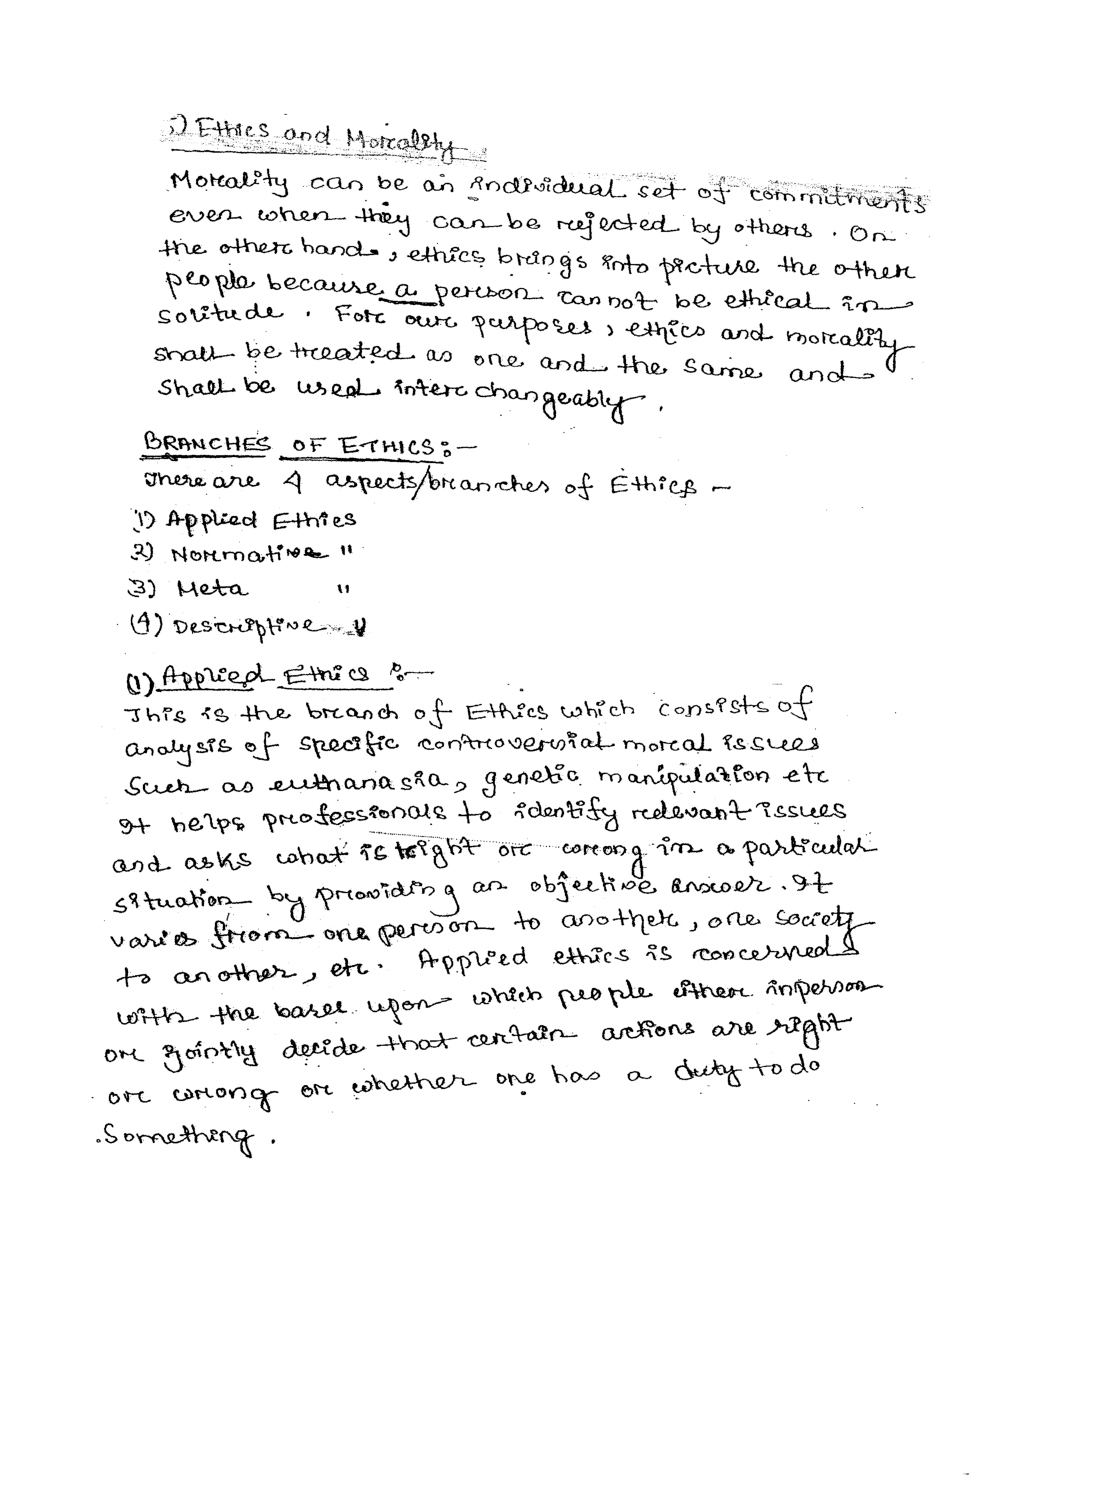 i) Ethics and Morality
Morality can be an individual set of commitments
even when they can be rejected by others. On
the other hand, ethics brings into picture the other
people because a person cannot be ethical in
solitude. For our purposes, ethics and morality
shall be treated as one and the same and
shall be used interchangeably.
BRANCHES OF ETHICS:-
There are 4 aspects/branches of Ethics -
1) Applied Ethics
2) Normative "
3) Meta "
(4) Descriptive "
(1) Applied Ethics :-
This is the branch of Ethics which consists of
analysis of specific controversial moral issues
Such as euthanasia, genetic manipulation etc
It helps professionals to identify relevant issues
and asks what is right or wrong in a particular
situation by providing an objective answer. It
varies from one person to another, one society
to another, etc. Applied ethics is concerned
with the bases upon which people either inperson
or jointly decide that certain actions are right
or wrong or whether one has a duty to do
Something.